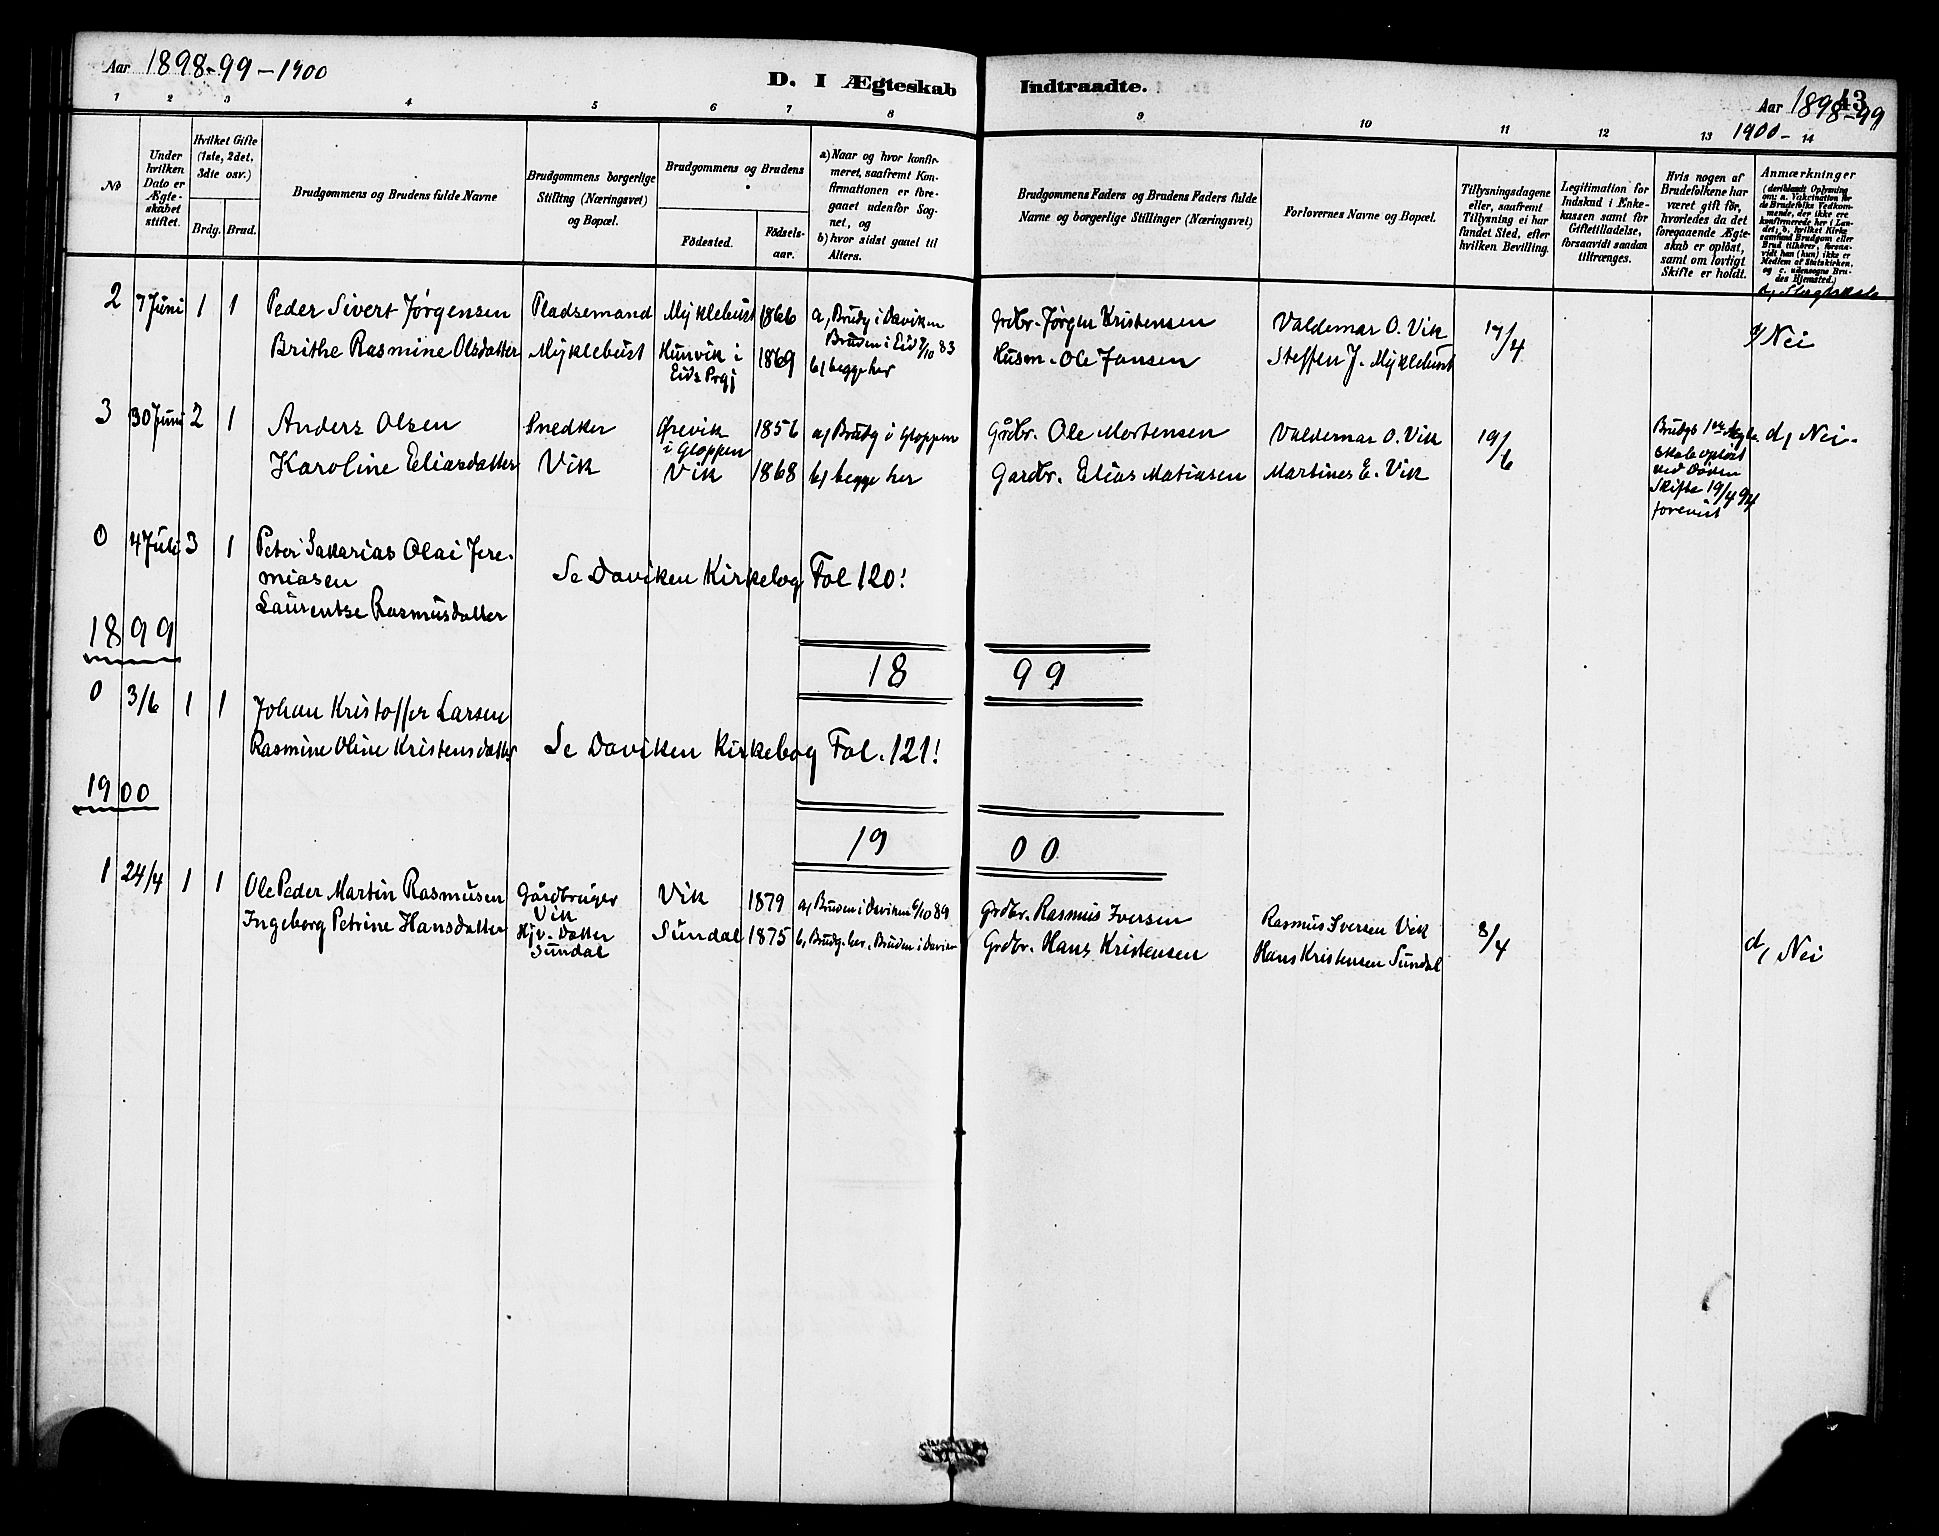 Aar 1898-99-1900
D. I Ægteskab Indtraadte.
43
Aar 1898-99
1900-
1 2 3 4 5 6 7 8 9 10 11 12 13 14
No
Under hvilken Dato er Ægteskabet stiftet.
Hvilket Gifte (1ste, 2det, 3die osv.)
Brdg. Brud.
Brudgommens og Brudens fulde Navne
Brudgommens borgerlige Stilling (Næringsvei) og Bopæl.
Brudgommens og Brudens
Födested.
Födsels-aar.
a) Naar og hvor konfirmeret, saafremt Konfirmationen er foregaaet udenfor Sognet, og
b) hvor sidst gaaet til Alters.
Brudgommens Faders og Brudens Faders fulde Navne og borgerlige Stillinger (Næringsvei)
Forlovernes Navne og Bopæl.
Tillysningsdagene eller, saafremt Tillysning ei har fundet Sted, efter hvilken Bevilling.
Legitimation for Indskud i Enkekassen samt for Giftetilladelse, forsaavidt saadan tiltrænges.
Hvis nogen af Brudefolkene har været gift för, hvorledes da det foregaaende Ægteskab er oplöst, samt om lovligt Skifte er holdt.
Anmærkninger
(deriblandt Oplysning om: a. Vakcination for de Brudefolks Vedkommende, der ikke ere konfirmerede her i Landet; b. hvilket Kirkesamfund Brudgom eller Brud tilhörer, forsaavidt han (hun) ikke er Medlem af Statskirken, og c. udensogns Brudes Hjemsted.)
2 7 Juni 1 1 Peder Sivert Jørgensen Pladsemand Myklebust 1866 a, Brudg i Daviken Grdbr. Jørgen Kristensen Valdemar O. Vik 17/4
Bruden i Eid 7/10 83
Brithe Rasmine Olsdatter Myklebust Hunvik i 1869 b) begge her Husm. Ole Jansen Steffen J. Myklebust Nei
Eids Prgj
3 30 Juni 2 1 Anders Olsen Snedker Ørevik 1856 a) Brudg i Gloppen Gårdbr. Ole Mortensen Valdemar O. Vik 19/6 d, Nei.
i Gloppen
Karoline Eliasdatter Vik Vik 1868 b) begge her Gardbr. Elias Matiasen Martines E. Vik
Brudgs 1ste Ægte-
skab opløst
ved Døden
Skifte 19/4 94
forevist
0 4 Juli 3 1 Peter Sakarias Olai Jere-
miasen
Se Daviken Kirkebog Fol 120!
Laurentse Rasmusdatter
1899
1899
0 3/6 1 1 Johan Kristoffer Larsen
Rasmine Oline Kristensdatter Se Daviken Kirkebog Fol. 121!
1900
1900
1 24/4 1 1 Ole Peder Martin Rasmusen Gårdbruger Vik 1879 a) Bruden i Daviken 6/10 89 Grdbr. Rasmus Iversen Rasmus Iversen Vik 8/4
Vik
Ingeborg Petrine Hansdatter Hjv. Datter Sundal 1875 b, Brudg. her. Bruden i Davien Grdbr. Hans Kristensen Hans Kristensen Sundal d, Nei
Sundal